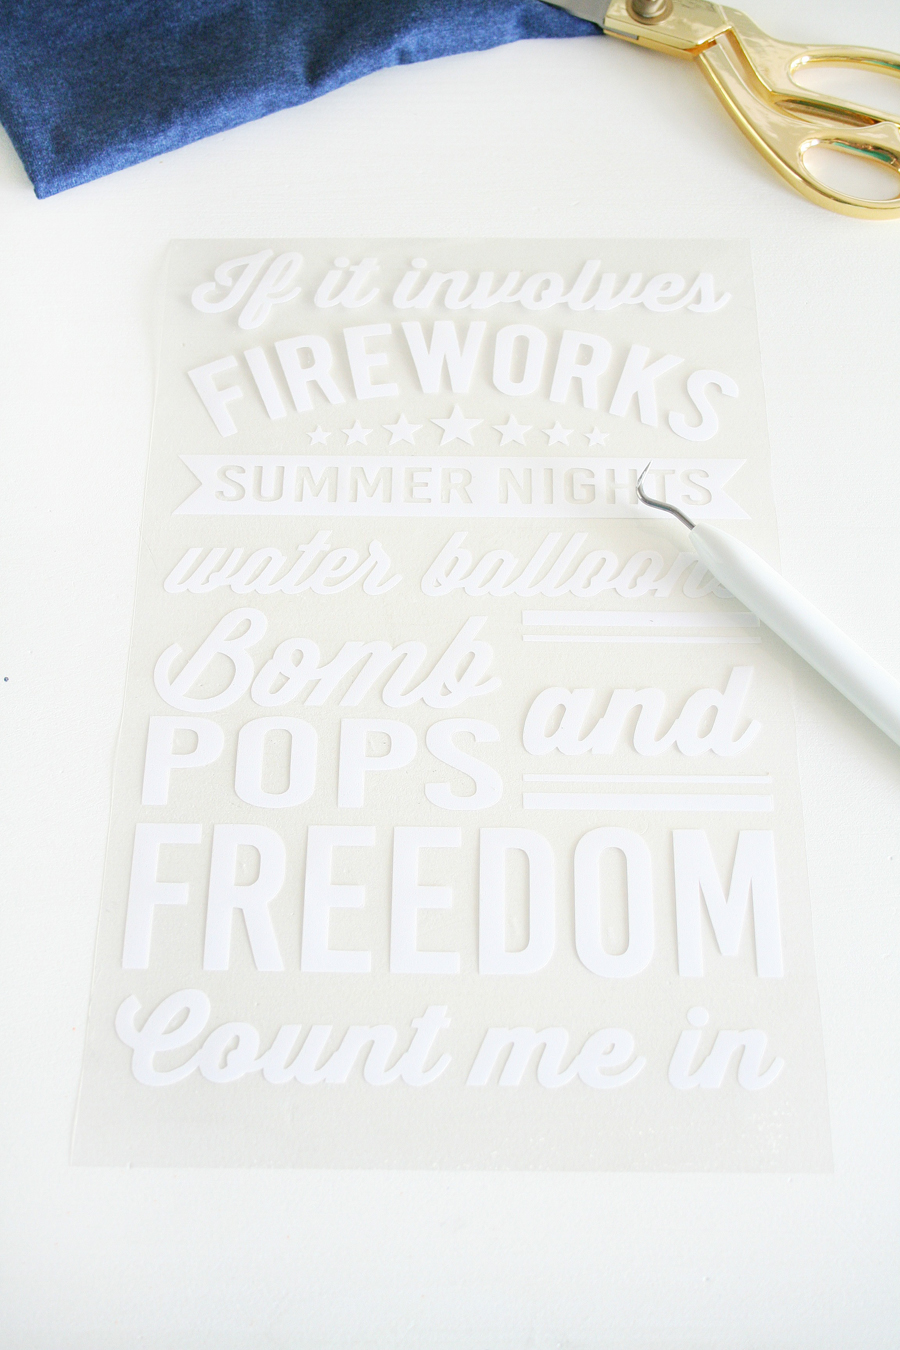 If it involves
FIREWORKS
SUMMER NIGHTS
water balloons
Bomb
POPS
and
FREEDOM
Count me in